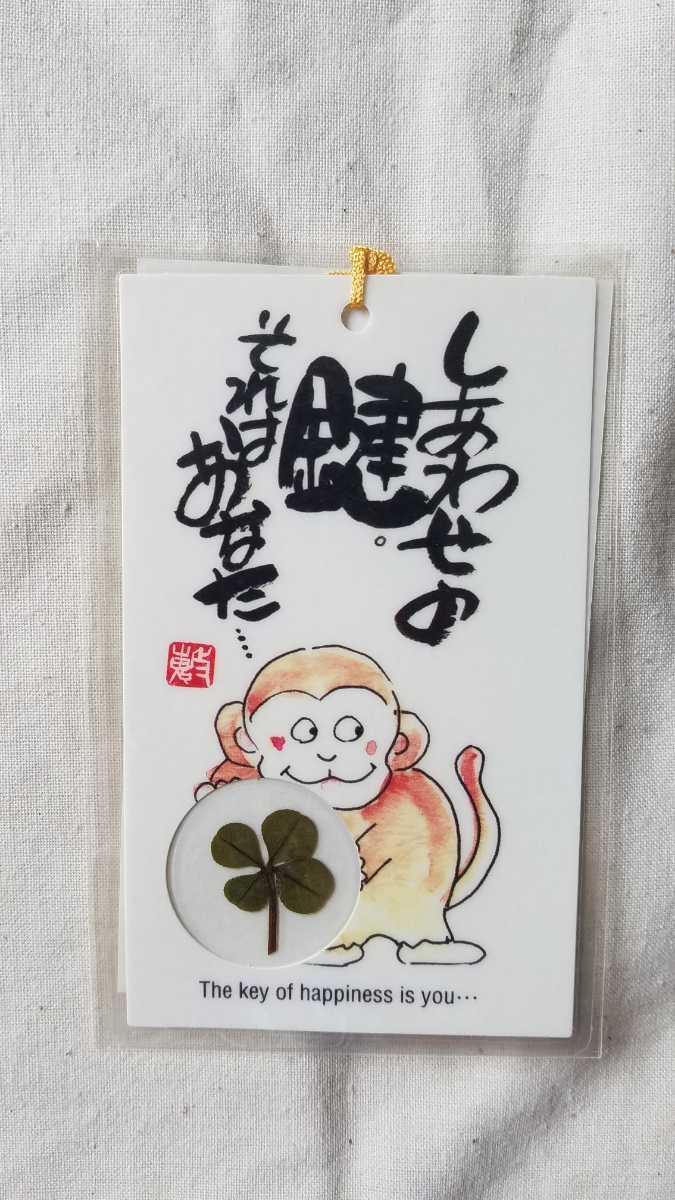 しあわせの
鍵。
それは
あなた……
The key of happiness is you…